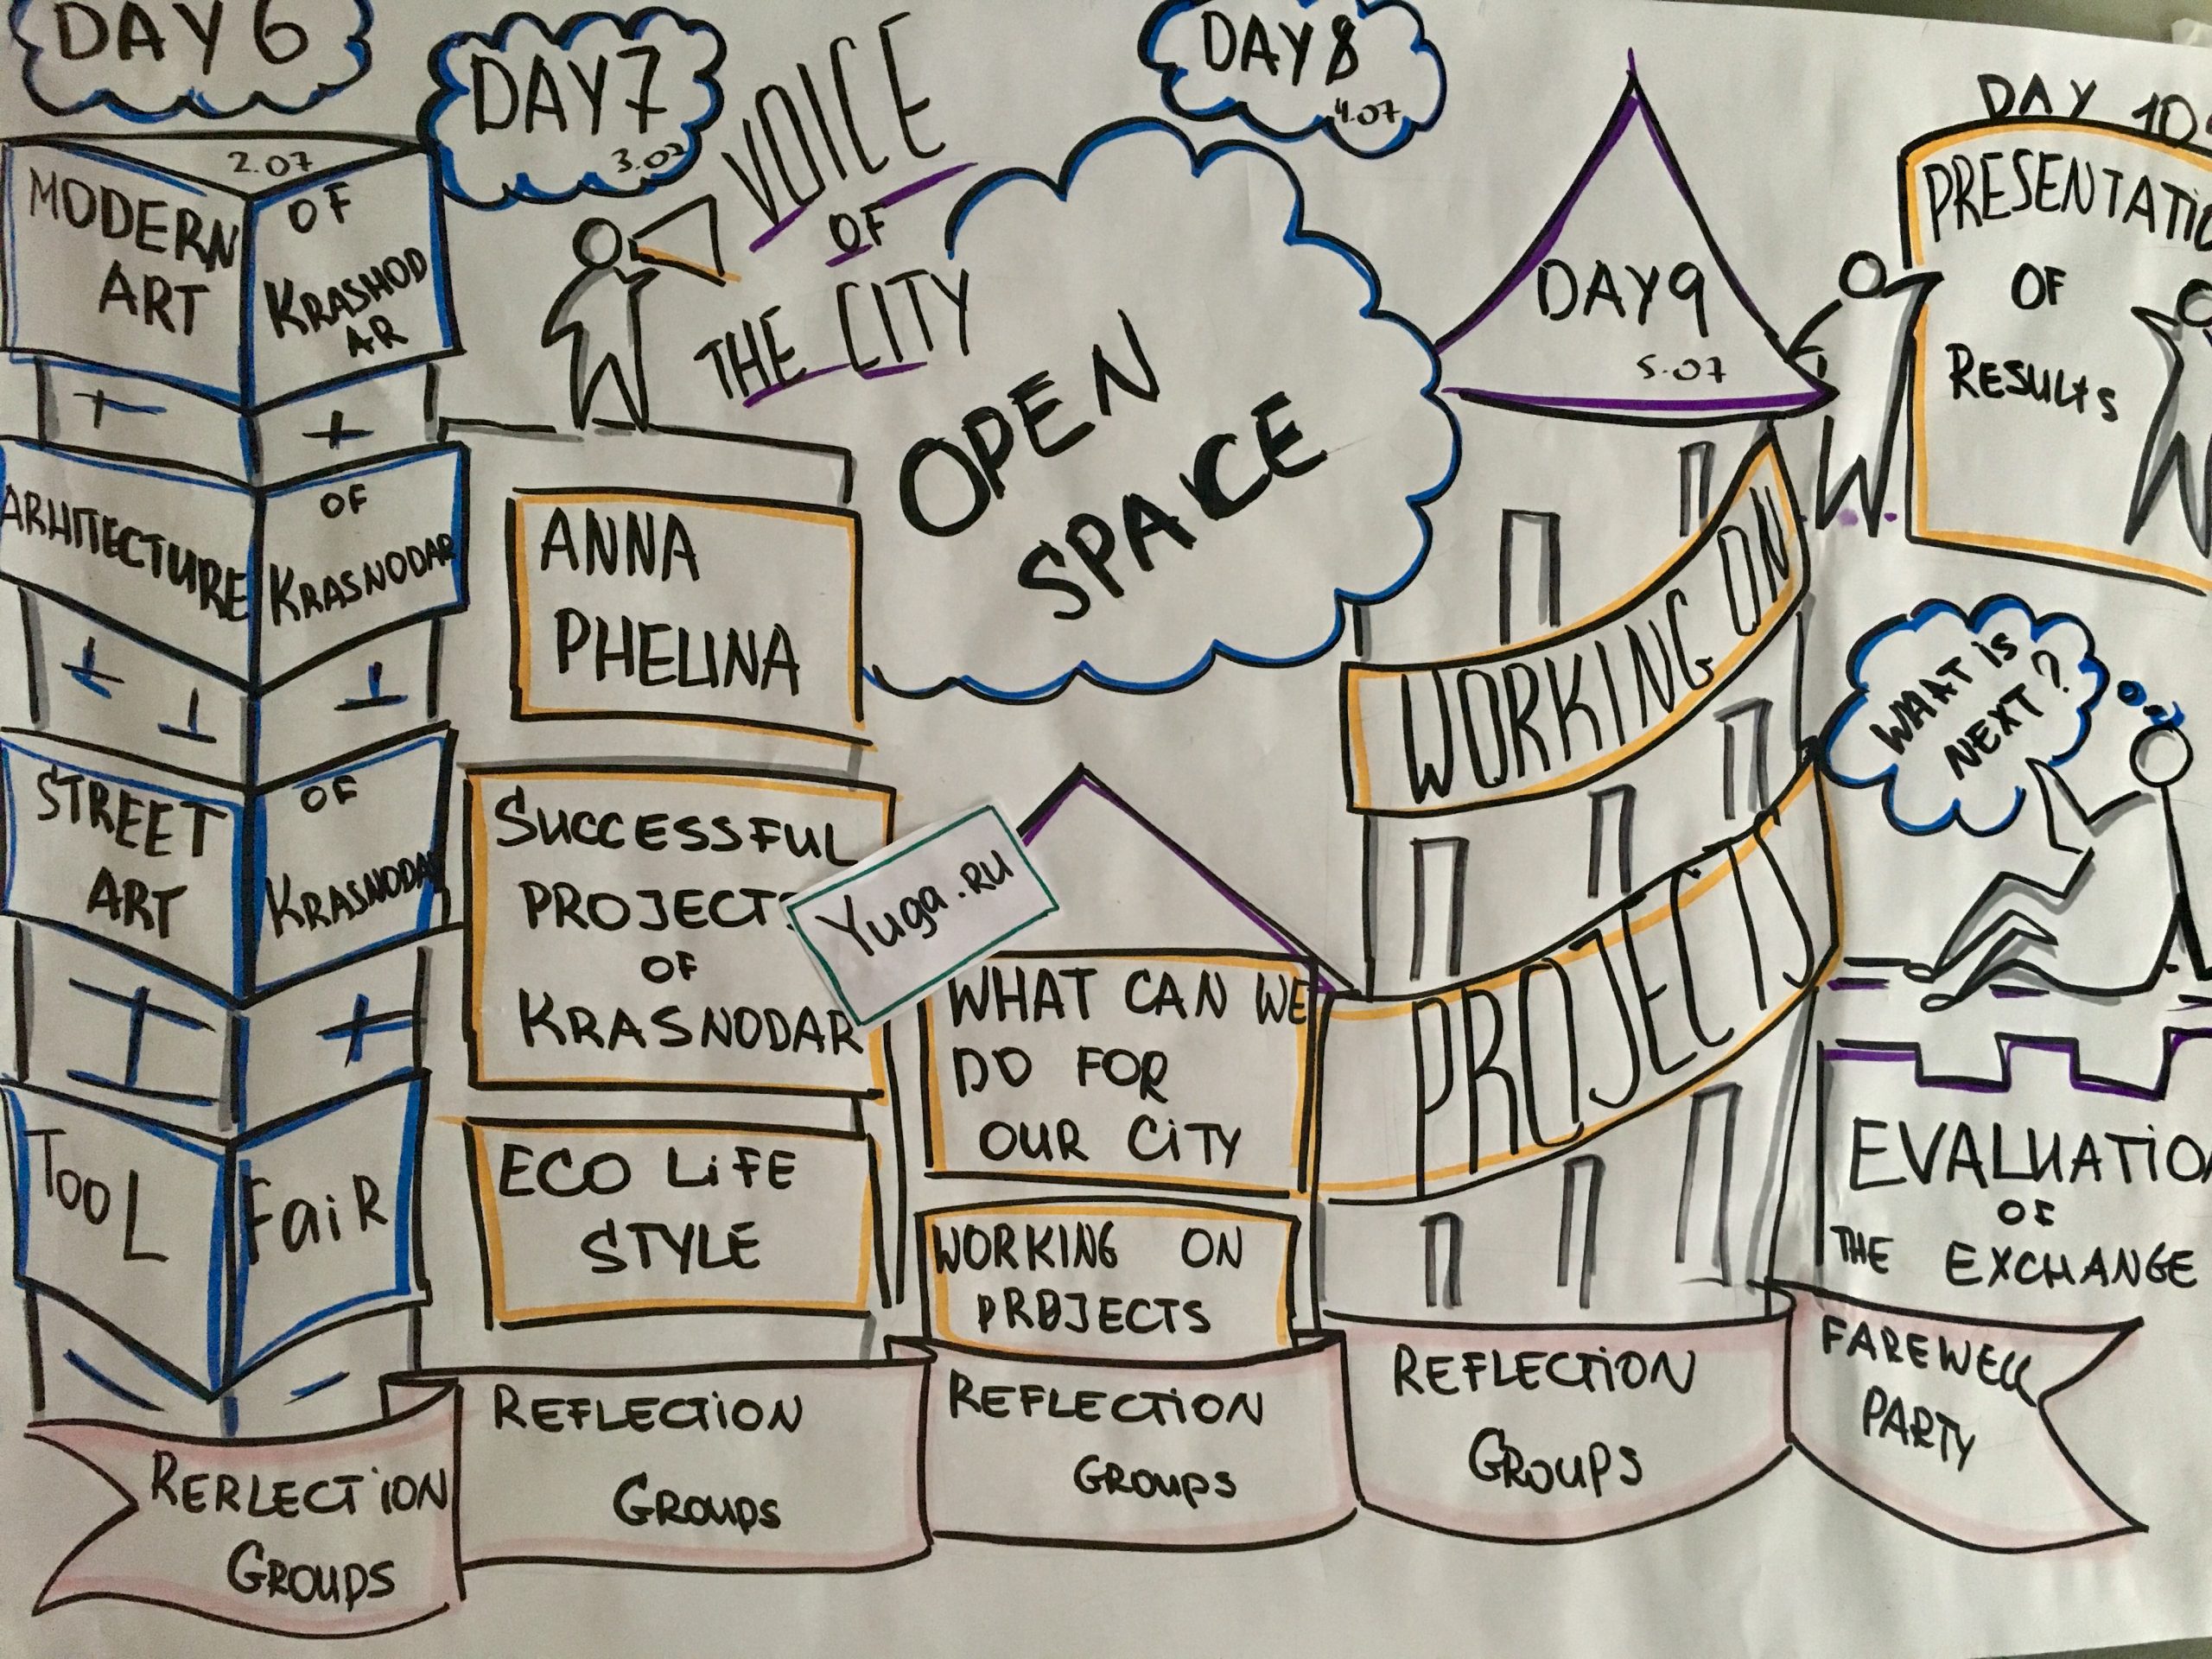 DAY 6
2.07
MODERN
ART
OF
KRASHOD
AR
ARHITECTURE
OF
KRASNODAR
STREET
ART
OF
KRASNODAR
TOOL
FaiR
RERLECTION
GROUPS
DAY 7
3.07
VOICE
OF
THE CITY
ANNA
PHELINA
SUCCESSFUL
PROJECTS
OF
KRASNODAR
Yuga.RU
ECO LiFE
STYLE
REFLECTiON
GROUPS
DAY 8
4.07
OPEN
SPACE
WHAT CAN WE
DO FOR
OUR CiTY
WORKING ON
PROJECTS
REFLECTiON
GROUPS
DAY 9
5.07
WORKING ON
PROJECTS
REFLECTiON
GROUPS
DAY 10
PRESENTATiO
OF
RESULTS
WHAT iS
NEXT?
EVALUATiO
OF
THE EXCHANGE
FAREWELL
PARTY